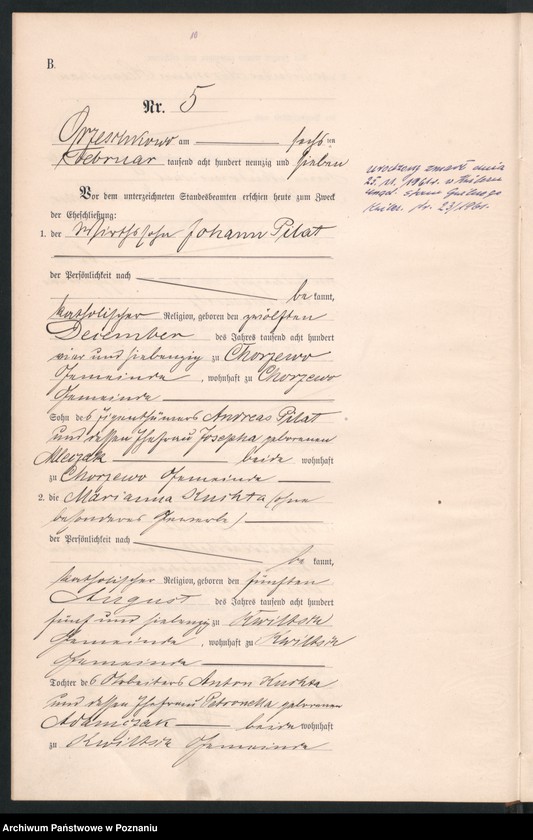 10
B.
Nr. 5
Orzeschkowo am sechs ten
Februar tausend acht hundert neunzig und sieben
Vor dem unterzeichneten Standesbeamten erschien heute zum Zweck
der Eheschließung:
1. der Wirthssohn Johann Pilat
der Persönlichkeit nach
be kannt,
katholischer Religion, geboren den zwölften
Dezember des Jahres tausend acht hundert
vier und siebenzig zu Chorzewo
Gemeinde, wohnhaft zu Chorzewo
Gemeinde
Sohn des Eigenthümers Andreas Pilat
und dessen Ehefrau Josepha geborenen
Mleczak beide wohnhaft
zu Chorzewo Gemeinde
2. die Marianna Kuchta (ohne
besonderes Gewerbe)
der Persönlichkeit nach
be kannt,
katholischer Religion, geboren den fünften
August des Jahres tausend acht hundert
fünf und siebenzig zu Kwiltsch
Gemeinde, wohnhaft zu Kwiltsch
Gemeinde
Tochter des Arbeiters Anton Kuchta
und dessen Ehefrau Petronella geborenen
Adamczak beide wohnhaft
zu Kwiltsch Gemeinde
zmarł dnia
Nr. 23/1961.
Archiwum Państwowe w Poznaniu